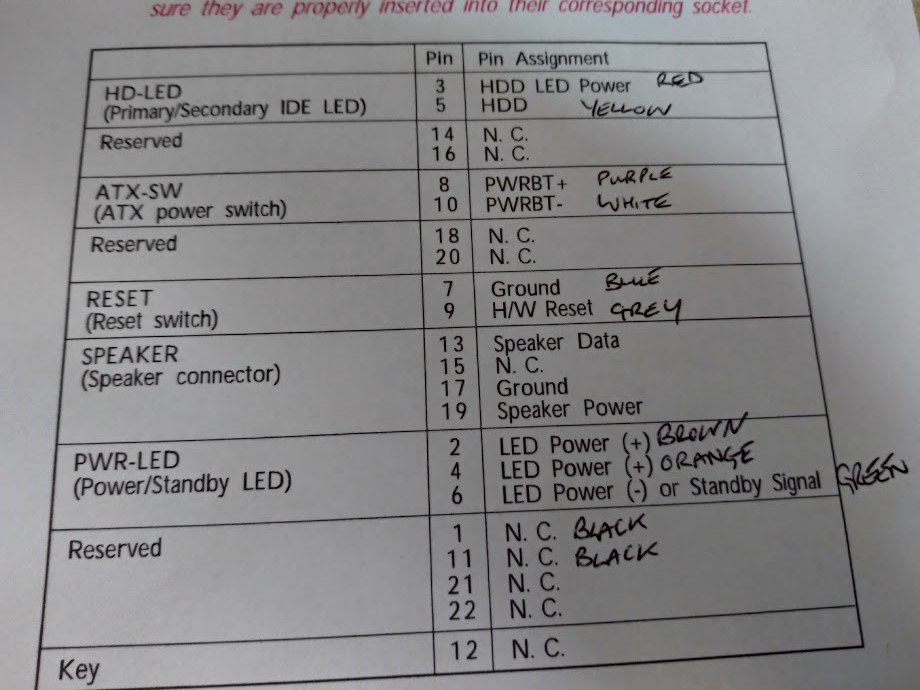 sure they are properly inserted into their corresponding socket.
Pin Pin Assignment
HD-LED 3 HDD LED Power RED
(Primary/Secondary IDE LED) 5 HDD YELLOW
Reserved 14 N. C.
16 N. C.
ATX-SW 8 PWRBT+ PURPLE
(ATX power switch) 10 PWRBT- WHITE
Reserved 18 N. C.
20 N. C.
RESET 7 Ground BLUE
(Reset switch) 9 H/W Reset GREY
SPEAKER 13 Speaker Data
(Speaker connector) 15 N. C.
17 Ground
19 Speaker Power
PWR-LED 2 LED Power (+) BROWN
(Power/Standby LED) 4 LED Power (+) ORANGE
6 LED Power (-) or Standby Signal GREEN
Reserved 1 N. C. BLACK
11 N. C. BLACK
21 N. C.
22 N. C.
Key 12 N. C.